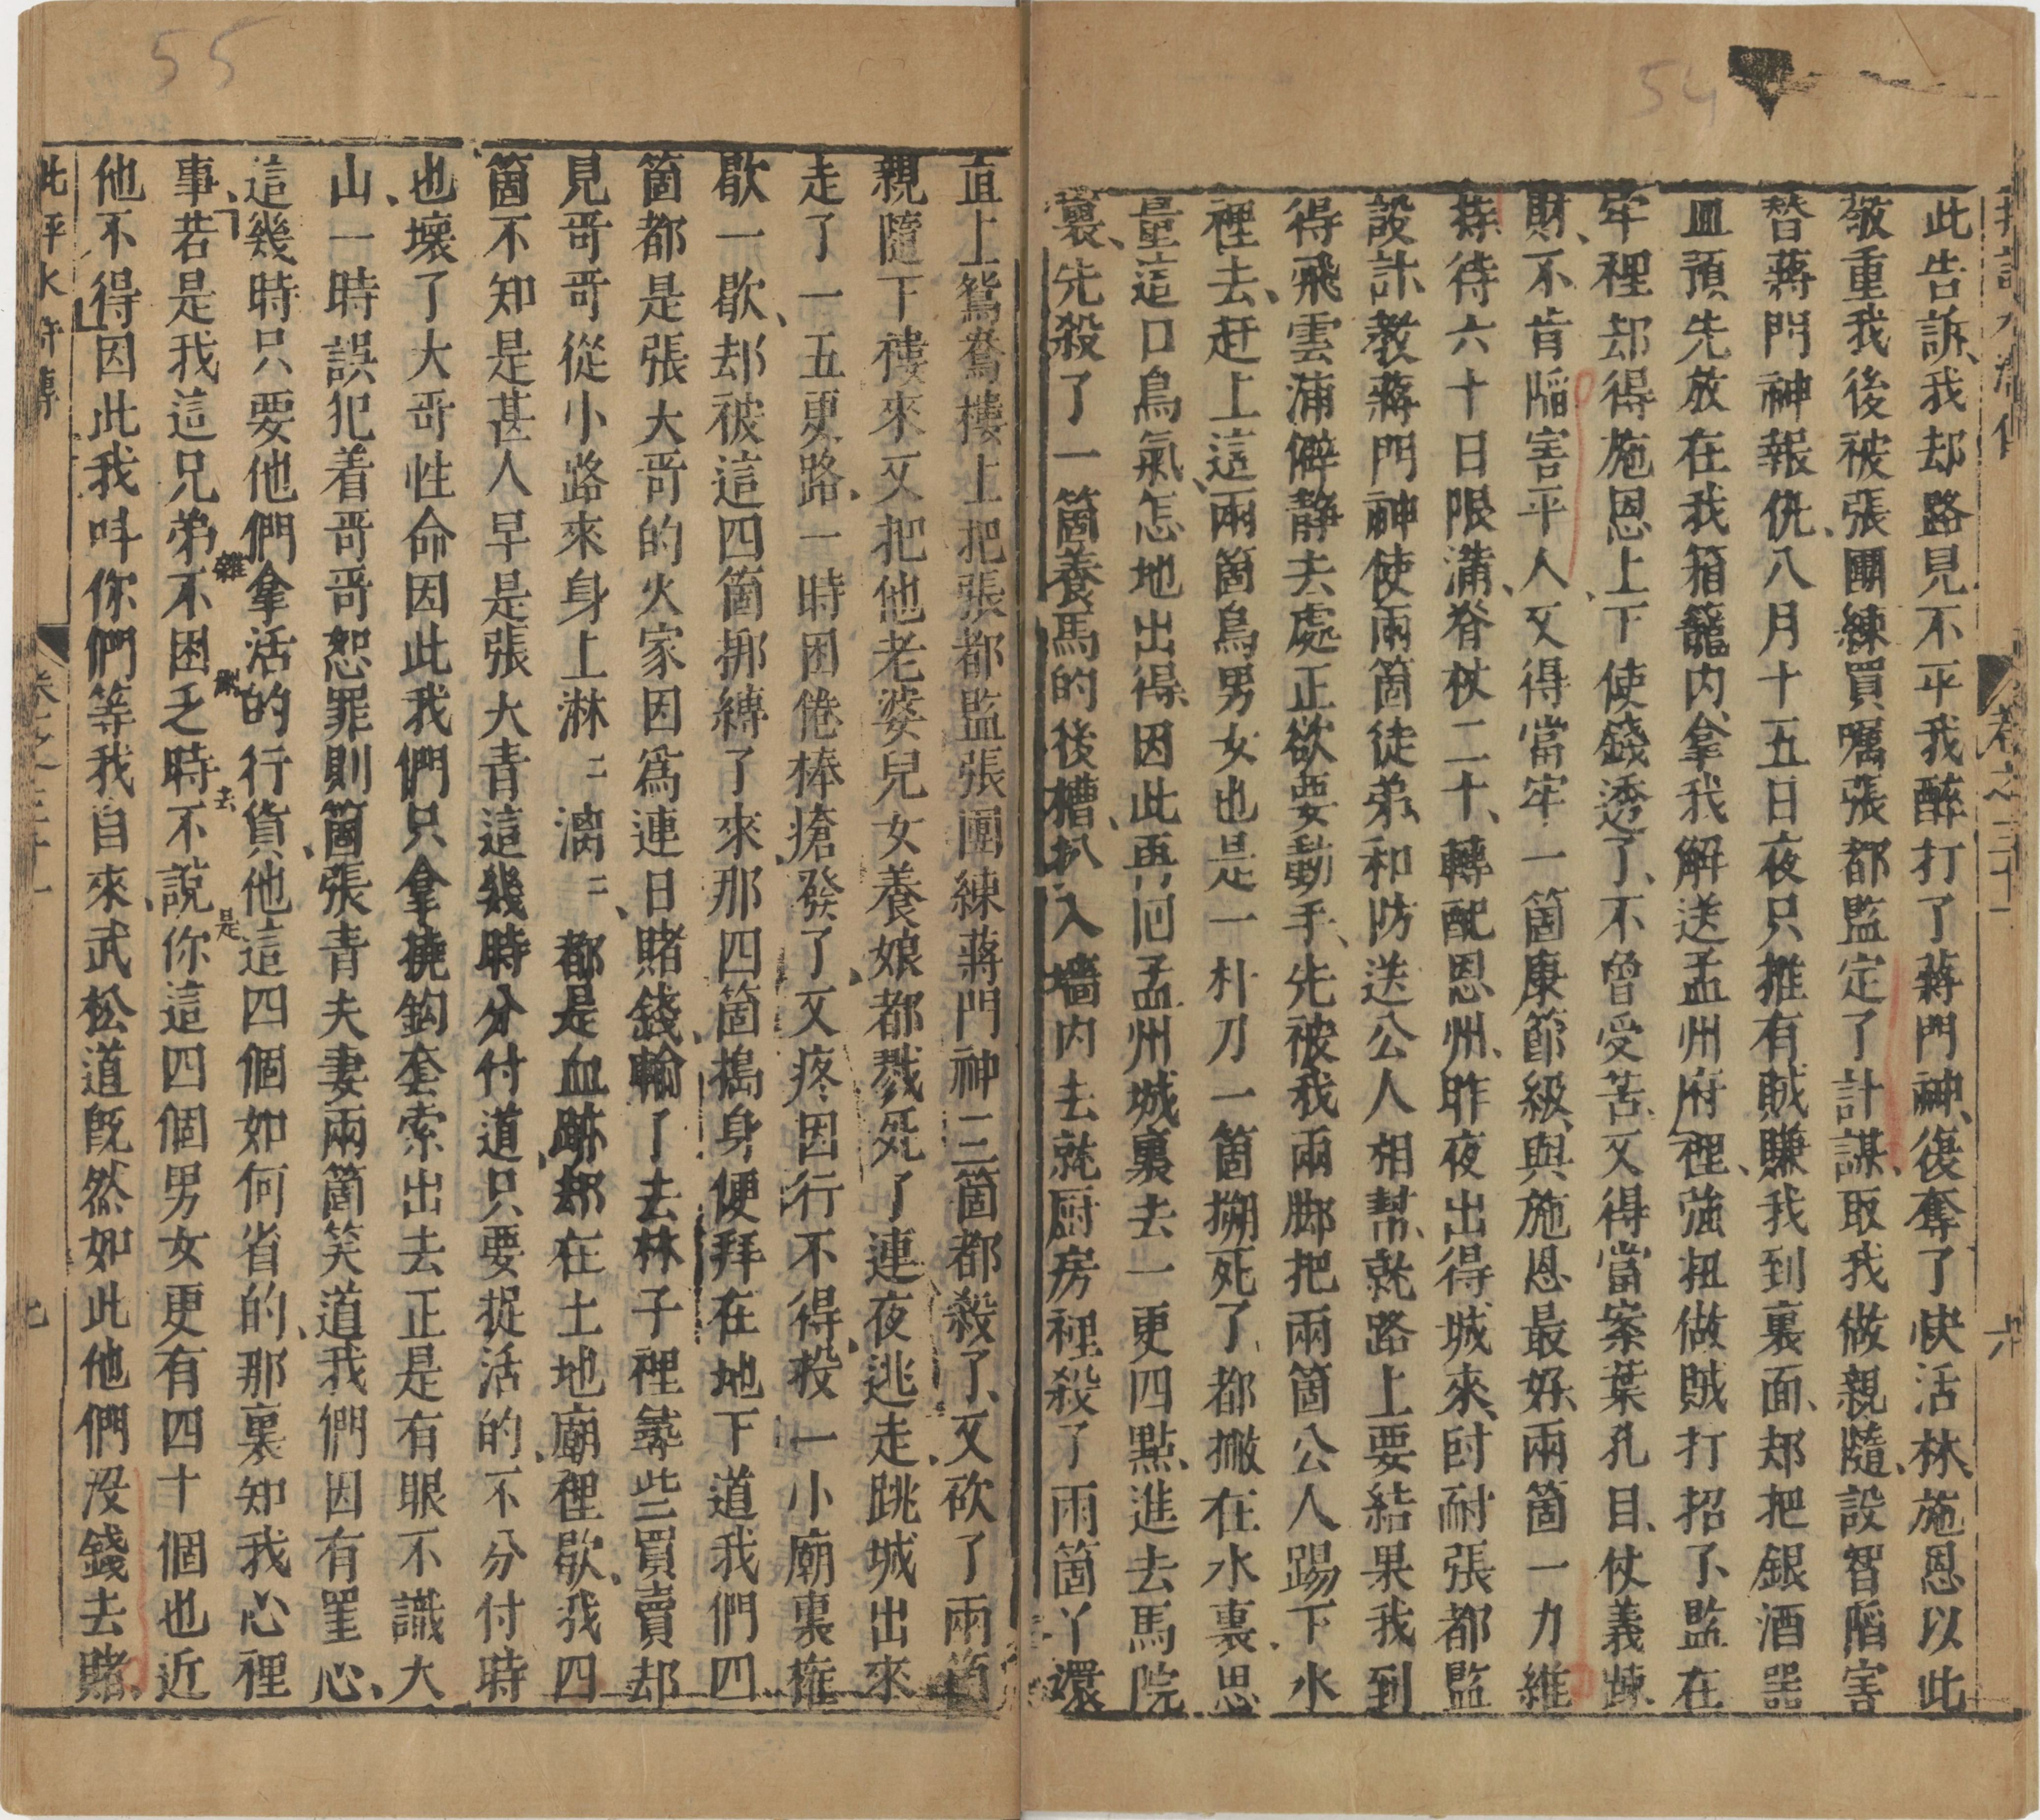 此告訴、我却路見不平我醉打了蔣門神、復奪了快活林、施恩以此
敬重我後被張團練買囑張都監定了計謀、取我做親隨、設智陷害
替蔣門神報仇、八月十五日夜只推有賊賺我到裏面、却把銀酒噐
皿預先放在我箱籠内、拿我解送孟州府裡、強扭做賊打招了監在
牢裡却得施恩上下使錢透了、不曾受苦、又得當案葉孔目、仗義疎
財、不肯陷害平人、又得當牢一箇康節級、與施恩最好、兩箇一力維
持、待六十日限滿、脊杖二十、轉配恩州、昨夜出得城來、叵耐張都監
設計教蔣門神使兩箇徒弟和防送公人相幫、就路上要結果我到
得飛雲浦僻静去處正欲要動手、先被我兩脚把兩箇公人踢下水
裡去、赶上這兩箇鳥男女也是一朴刀一箇搠死了、都撇在水裏、思
量這口鳥氣、怎地出得、因此再囘孟州城裏去一更四點、進去馬院
裏、先殺了一箇養馬的後槽、扒入墻内去就厨房裡殺了兩箇丫還
直上鴛鴦樓上把張都監張團練蔣門神三箇都殺了、又砍了兩箇
親隨下樓來又把他老婆兒女養娘都戮死了連夜逃走、跳城出來
走了一五更路、一時困倦棒瘡發了、又疼因行不得、投一小廟裏権
歇一歇、却被這四箇挷縛了來那四箇搗身便拜在地下道我們四
箇都是張大哥的火家因爲連日賭錢、輸了去林子裡㝷些買賣却
見哥哥從小路來身上淋〻漓〻都是血跡、却在土地廟裡歇、我四
箇不知是甚人早是張大青這幾時分付道、只要捉活的、不分付時
也壞了大哥性命因此我們只拿撓鈎套索出去正是有眼不識大
山、一時誤犯着哥哥恕罪則箇張青夫妻兩箇笑道我們因有罣心、
這幾時只要他們拿活的行貨、他這四個如何省的、那裏知我心裡
事、若是我這兄弟不困乏時不說、你這四個男女更有四十個也近
他不得因此我呌你們等我自來、武松道既然如此他們沒錢去賭、
卷之三十一
六